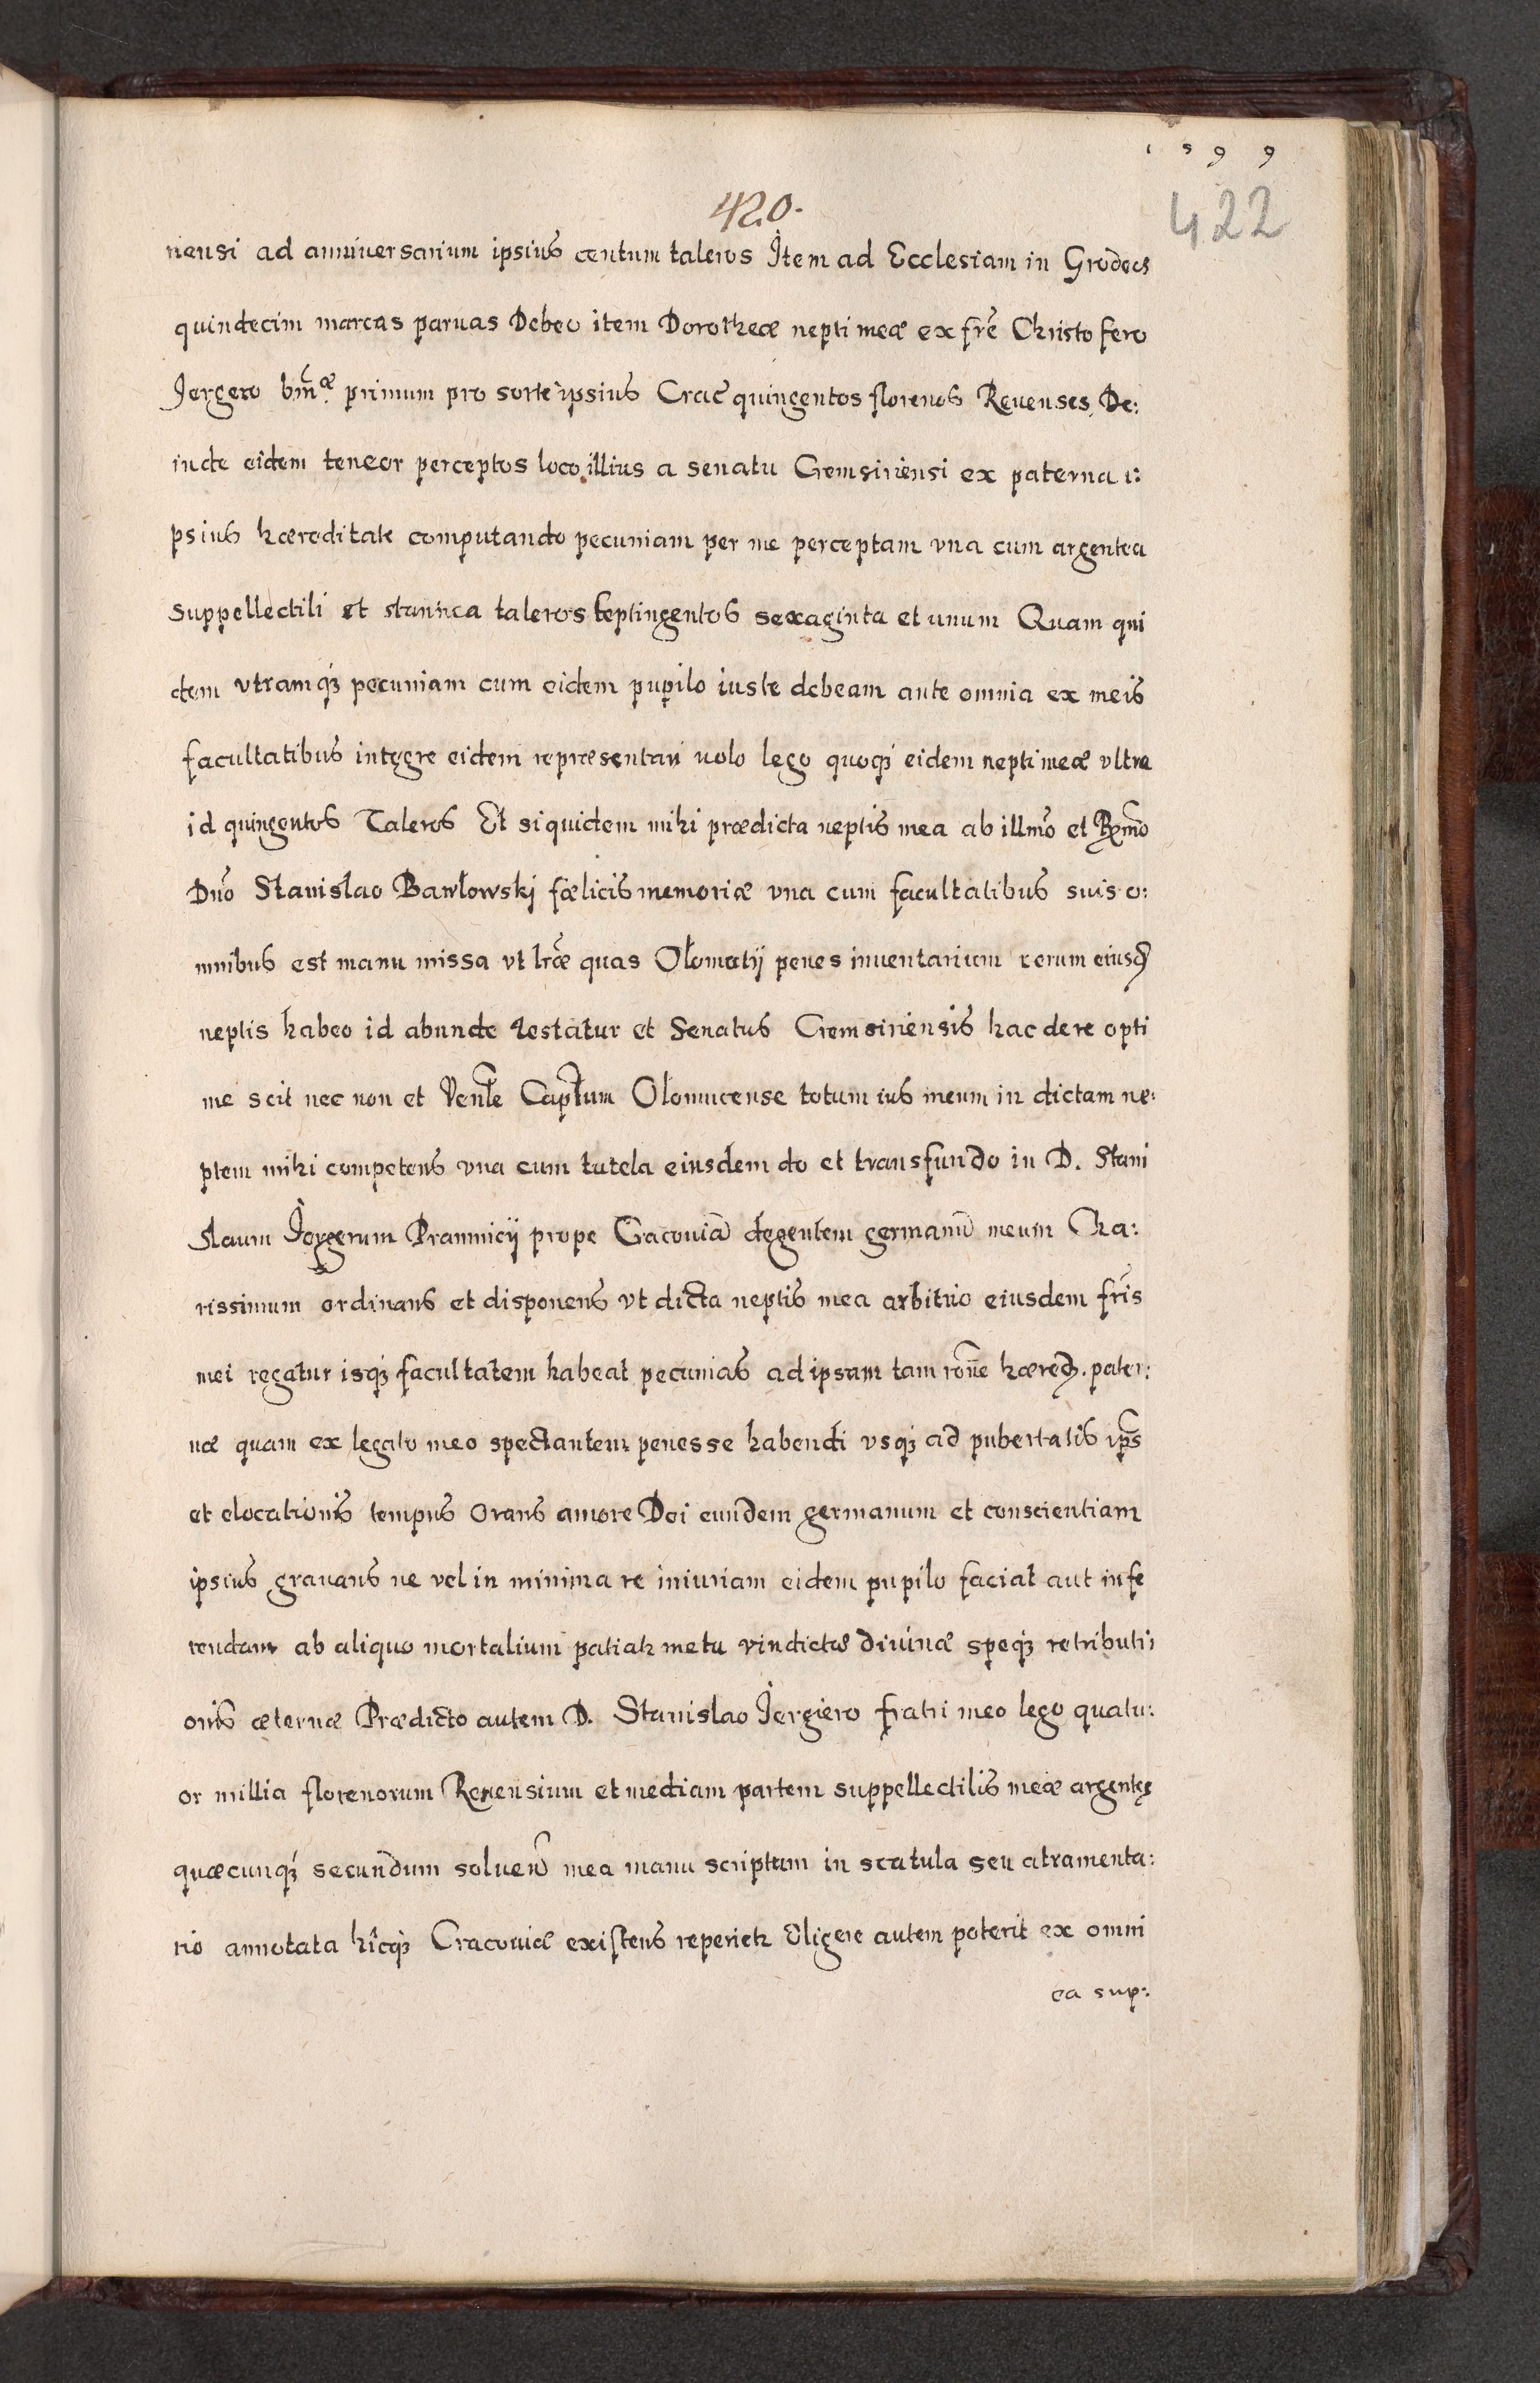 1599
420.
422
riensi ad anniuersarium ipsius centum taleros Item ad Ecclesiam in Grodecz
quindecim marcas paruas Debeo item Dorotheæ nepti meæ ex fr̃e Christofero
Jergero primum pro sorte ipsius Crac̃ quingentos florenos Renenses, De:
inde eidem teneor perceptos loco illius a senatu Cremsiriensi ex paterna i:
psius hæreditate computando pecuniam per me perceptam vna cum argentea
suppellectili et stannea taleros septingentos sexaginta et unum Quam qui
dem vtramq₃ pecuniam cum eidem pupilo iuste debeam ante omnia ex meis
facultatibus integre eidem repræsentari uolo lego quoq₃ eidem nepti meæ vltra
id quingentos Taleros Et siquidem mihi prædicta neptis mea ab illm̃o et Rx̃mo
Dño Stanislao Bawłowskj fælicis memoriæ vna cum facultatibus suis o:
mnibus est manu missa vt lr̃æ quas Olomutij penes inuentarium rerum eiusd
neptis habeo id abunde testatur et Senatus Cremsiriensis hac de re opti
me scit nec non et Venl̃e Capl̃tum Olomucense totum ius meum in dictam ne:
ptem mihi competens vna cum tutela eiusdem do et transfundo in D. Stani
slaum Jergerum Prannicij prope Cracouiã degentem germanũ meum Cha:
rissimum ordinans et disponens vt dicta neptis mea arbitrio eiusdem fr̃is
mei regatur isq₃ facultatem habeat pecunias ad ipsam tam rõne hæred. pater:
næ quam ex legato meo spectantem penes se habendi vsq₃ ad pubertatis ip̃s
et elocationis tempus Orans amore Dei eundem germanum et conscientiam
ipsius grauans ne vel in minima re iniuriam eidem pupilo faciat aut infe
rendam ab aliquo mortalium patiatr metu vindictæ diuinæ speq₃ retributi:
onis æternæ Prædicto autem D. Stanislao Jergiero fratri meo lego quatu:
or millia florenorum Renensium et mediam partem suppellectilis meæ argenteę
quæcunq₃ secundum mea manu scriptum in scatula seu atramenta:
rio annotata hîcq₃ Cracouiæ existens reperietr Eligere autem poterit ex omni
ea sup: